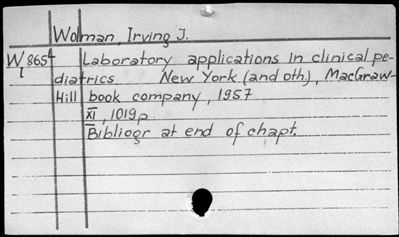 Wolman, Irving J.
W 865L Laboratory applications in clinical pe-
1 diatrics New York (and oth), MacGraw-
Hill book company, 1957
XI, 1019p.
Bibliogr at end of chapt.